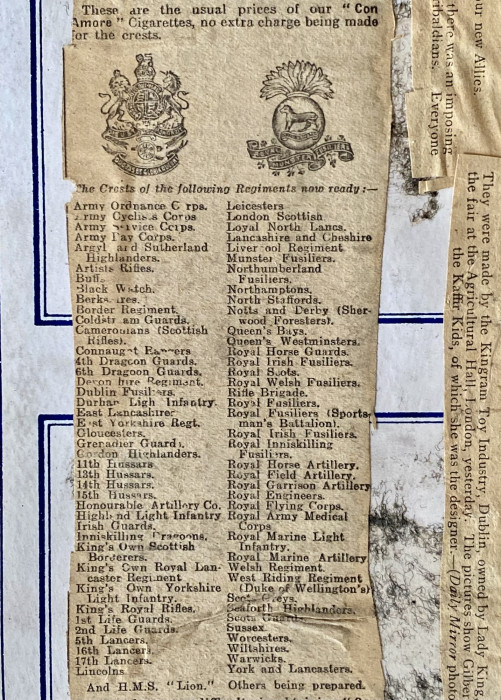 These are the usual prices of our "Con
Amore" Cigarettes, no extra charge being made
for the crests.
MUNSTER FUSILIERS
The Crests of the following Regiments now ready:—
Army Ordnance C rps.
Army Cyclis s Corps
Army Service Corps.
Army Pay Corps.
Argyl and Sutherland
Highlanders.
Artists Rifles.
Buffs
Black Watch.
Berks ires.
Border Regiment.
Coldstr am Guards.
Cameronians (Scottish
Rifles).
Connaught Rangers
4th Dragoon Guards.
6th Dragoon Guards.
Devon hire Regiment.
Dublin Fusiliers.
Durham Ligh Infantry.
East Lancashires
East Yorkshire Regt.
Gloucesters.
Grenadier Guards.
Gordon Highlanders.
11th Hussars
13th Hussars.
14th Hussars.
15th Hussars.
Honourable Artillery Co.
Highland Light Infantry
Irish Guards.
Inniskilling Dragoons.
King's Own Scottish
Borderers.
King's Own Royal Lan-
caster Regiment
King's Own Yorkshire
Light Infantry.
King's Royal Rifles.
1st Life Guards.
2nd Life Guards.
5th Lancers.
16th Lancers.
17th Lancers.
Lincolns
Leicesters
London Scottish
Loyal North Lancs.
Lancashire and Cheshire
Liver ool Regiment
Munster Fusiliers.
Northumberland
Fusiliers.
Northamptons.
North Staffords.
Notts and Derby (Sher-
wood Foresters).
Queen's Bays.
Queen's Westminsters.
Royal Horse Guards.
Royal Irish Fusiliers.
Royal Scots.
Royal Welsh Fusiliers.
Rifle Brigade.
Royal Fusiliers.
Royal Fusiliers (Sports
man's Battalion).
Royal Irish Fusiliers.
Royal Inniskilling
Fusiliers.
Royal Horse Artillery.
Royal Field Artillery.
Royal Garrison Artillery
Royal Engineers.
Royal Flying Corps.
Royal Army Medical
Corps
Royal Marine Light
Infantry.
Royal Marine Artillery
Welsh Regiment
West Riding Regiment
(Duke of Wellington's)
Scots Greys.
Seaforth Highlanders.
Scots Guards
Sussex
Worcesters.
Wiltshires.
Warwicks.
York and Lancasters.
And H.M.S. "Lion." Others being prepared.
ur new Allies.
there was an imposing
ibaldians. Everyone
They were made by the Kingram Toy Industry, Dublin, owned by Lady King
the fair at the Agricultural Hall, London, yesterday. The pictures show Gilber
the Kaffir Kids, of which she was the designer.—(Daily Mirror photo